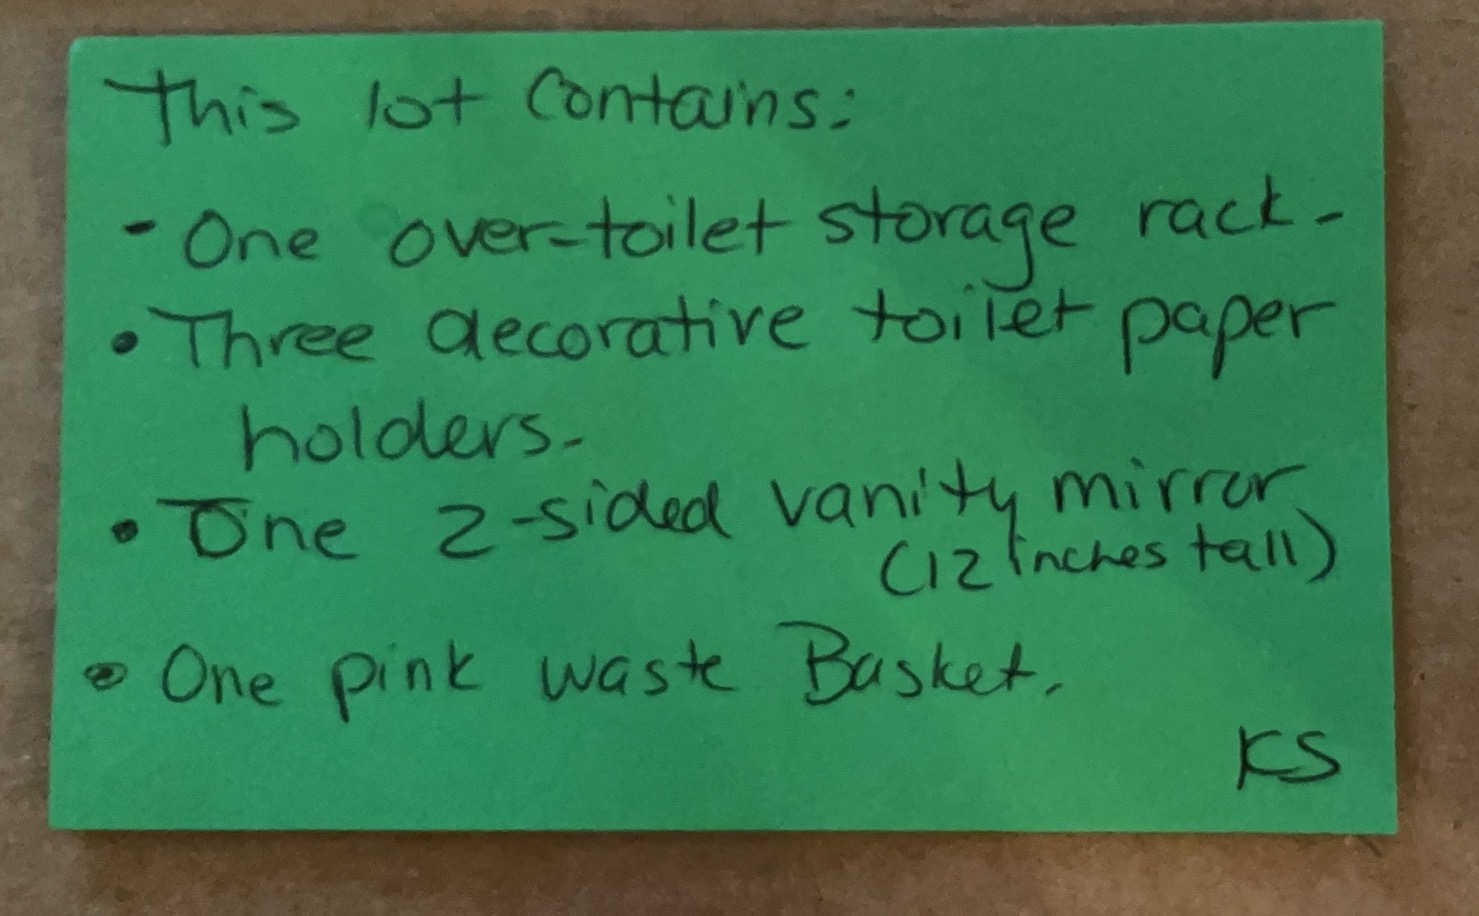 This lot Contains:
- One over-toilet storage rack-
• Three decorative toilet paper
holders-
• One 2-sided vanity mirror
(12 inches tall)
• One pink waste Basket.
KS